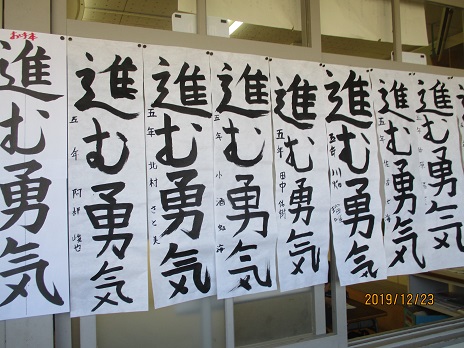 お手本
進む勇気
進む勇気
五年 阿部
進む勇気
五年 北村 さと美
進む勇気
五年 小酒
進む勇気
五年 田中
進む勇気
五年 川畑
進む勇気
五年
進む勇気
進む勇気
2019/12/23